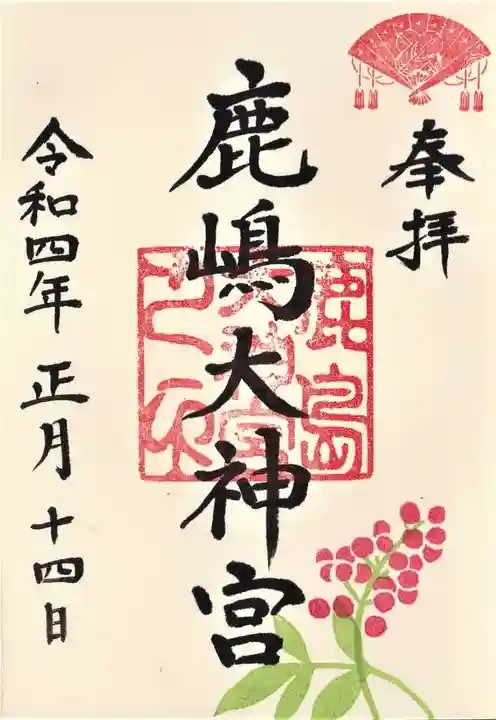 奉拝
鹿嶋大神宮
令和四年 正月 十四日